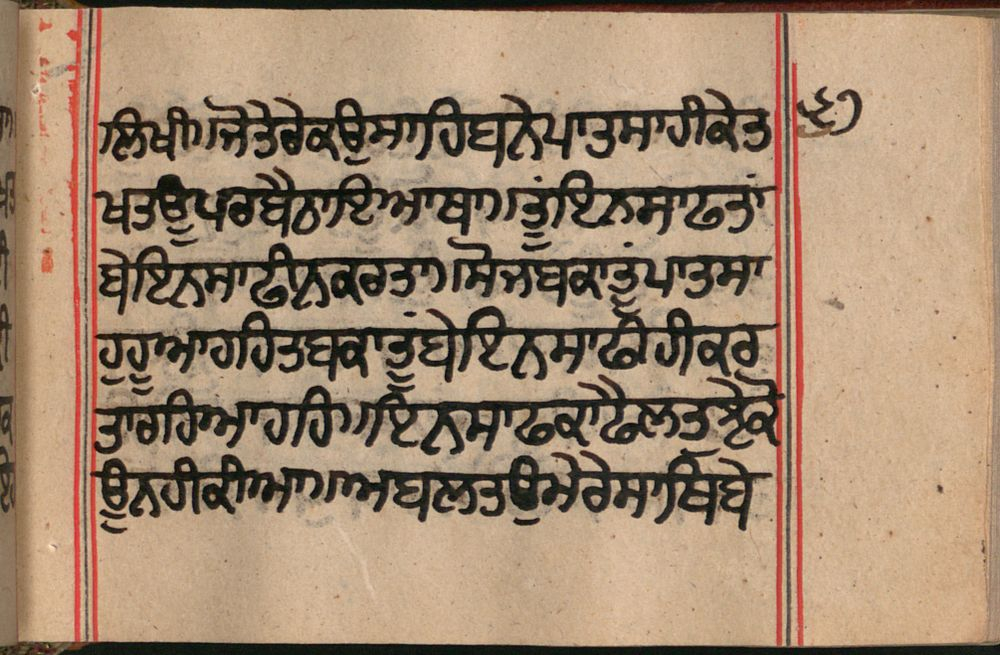 ਲਿਖੀ॥ਜੋਤੇਰੇਕਉਸਾਹਿਬਨੇਪਾਤਸਾਹੀਕੇਤ
ਖਤਊਪਰਬੈਠਾਇਆਥਾ॥ਤੂੰਇਨਸਾਫਤਾਂ
ਬੇਇਨਸਾਫੀਨਕਰਤਾ॥ਸੋਜਬਕਾਤੂੰਪਾਤਸਾ
ਹੁਹੂਆਹਹਿਤਬਕਾਤੂੰਬੇਇਨਸਾਫੀਹੀਕਰ
ਤਾਰਹਿਆਹਹਿ॥ਇਨਸਾਫਕਾਫੈਲਤੁਝੈਕੋ
ਊਨਹੀਕੀਆ॥ਅਬਲਤਉਮੇਰੇਸਾਥਿਬੇ